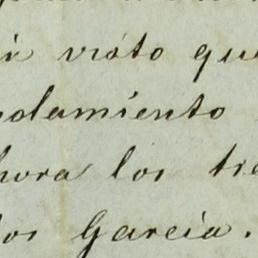 visto que
damiento
hora los
los García.